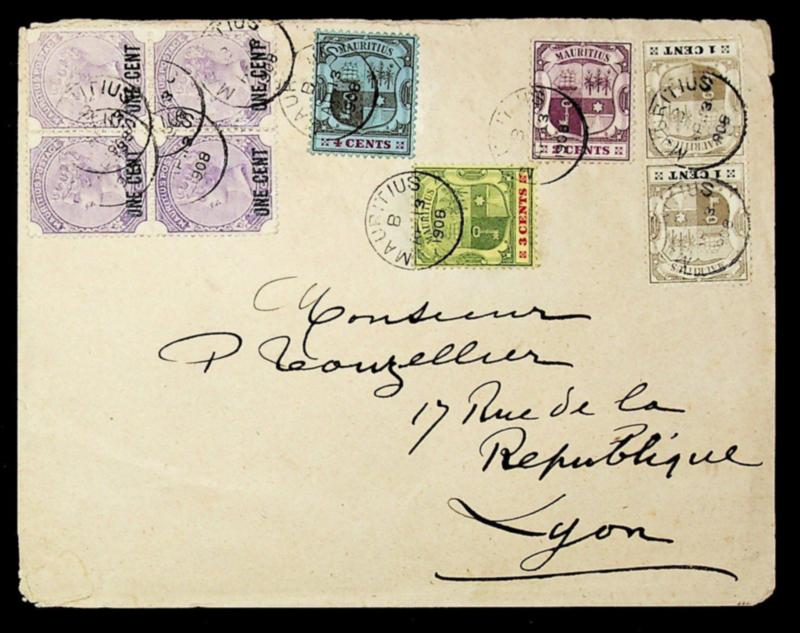 ONE CENT
ONE CENT
ONE CENT
ONE CENT
MAURITIUS
4 CENTS
MAURITIUS
2 CENTS
1 CENT
MAURITIUS
1 CENT
MAURITIUS
MAURITIUS
3 CENTS
MAURITIUS
B
13
1908
Monsieur
P Touzellier
17 Rue de la
Republique
Lyon